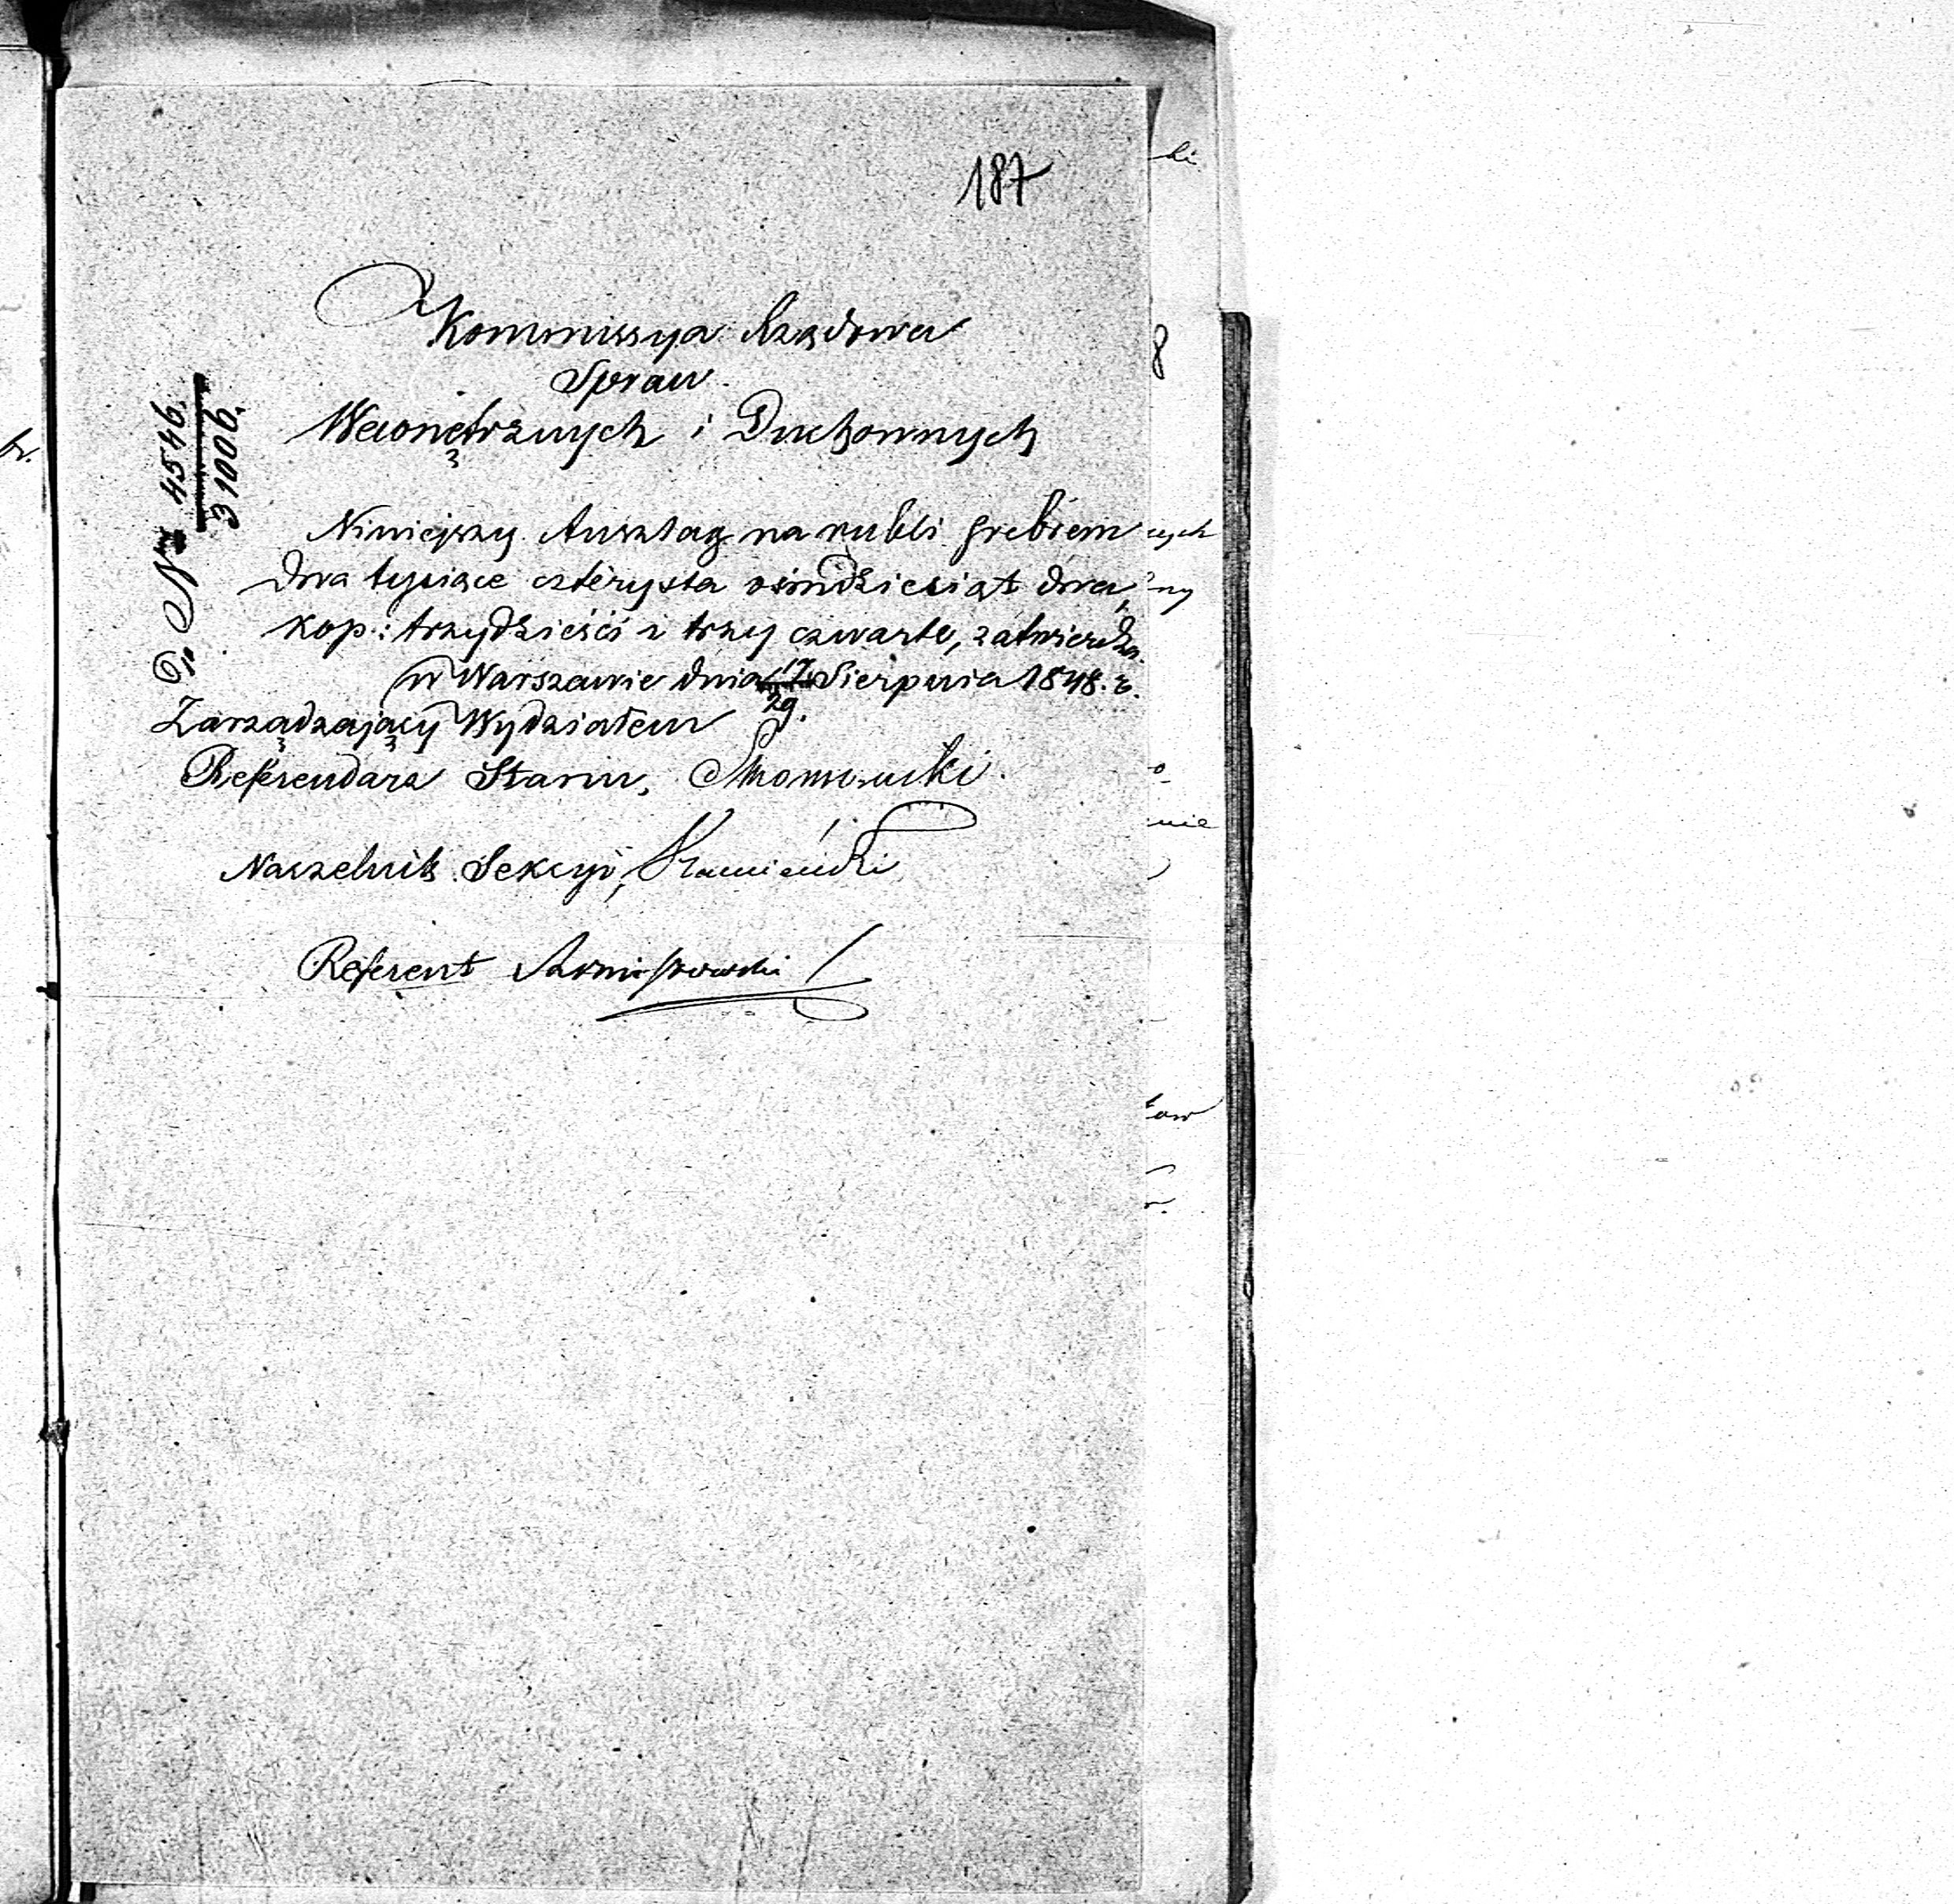 187
Kommissya Rządowa
Spraw
Wewnętrznych i Duchownych
D. Nro 4546.
31006.
Niniejszy Anszlag na rubli srebrem
dwa tysiące czterysta ośmdziesiąt dwa,
kop: trzydzieści i trzy czwarte, zatwierdza.
w Warszawie dnia 17/29. Sierpnia 1848. r.
Zarządzający Wydziałem
Referendarz Stanu,
Naczelnik Sekcyi, Kamiński
Referent